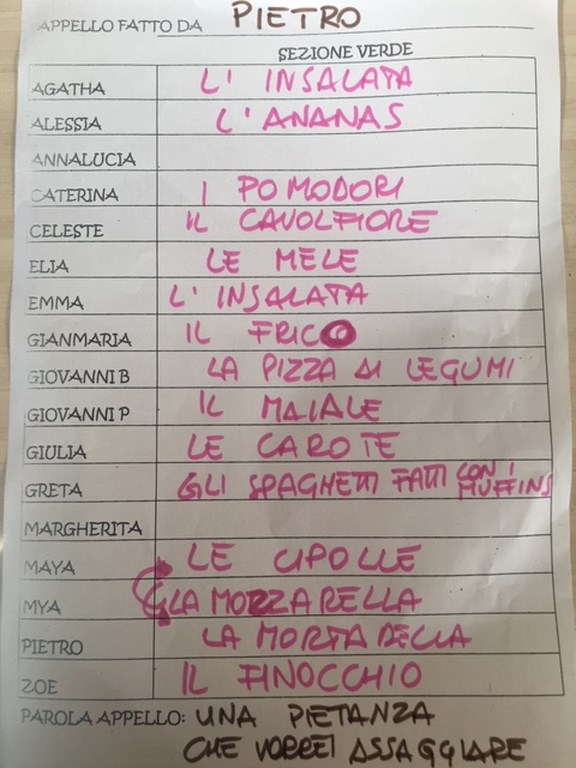 APPELLO FATTO DA PIETRO
SEZIONE VERDE
AGATHA L' INSALATA
ALESSIA L'ANANAS
ANNALUCIA
CATERINA I POMODORI
CELESTE IL CAVOLFIORE
ELIA LE MELE
EMMA L' INSALATA
GIANMARIA IL FRICO
GIOVANNI B LA PIZZA DI LEGUMI
GIOVANNI P IL MAIALE
GIULIA LE CAROTE
GRETA GLI SPAGHETTI FATTI CON I MUFFINS
MARGHERITA
MAYA LE CIPOLLE
MYA LA MOZZARELLA
PIETRO LA MORTADELLA
ZOE IL FINOCCHIO
PAROLA APPELLO: UNA PIETANZA
CHE VORREI ASSAGGIARE